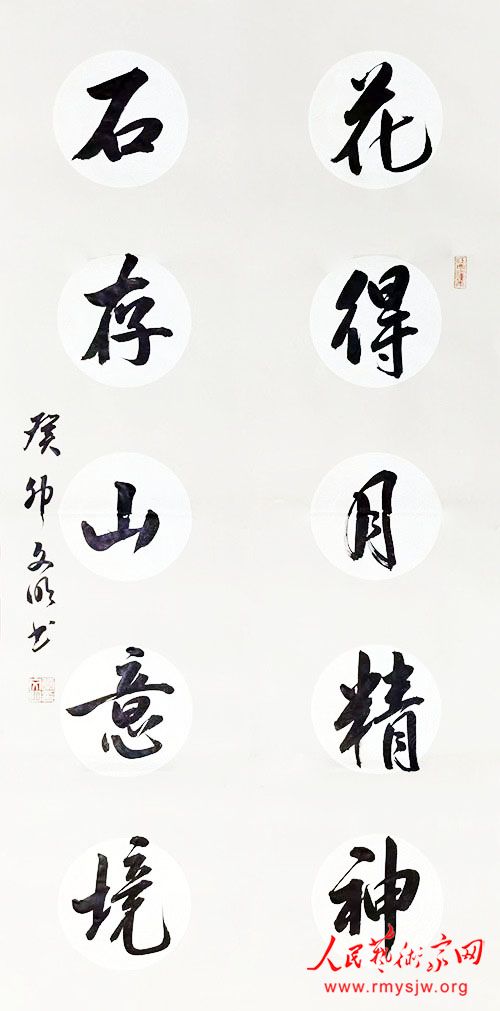 花得月精神
石存山意境
癸卯文明书
人民藝術家网
www.rmysjw.org